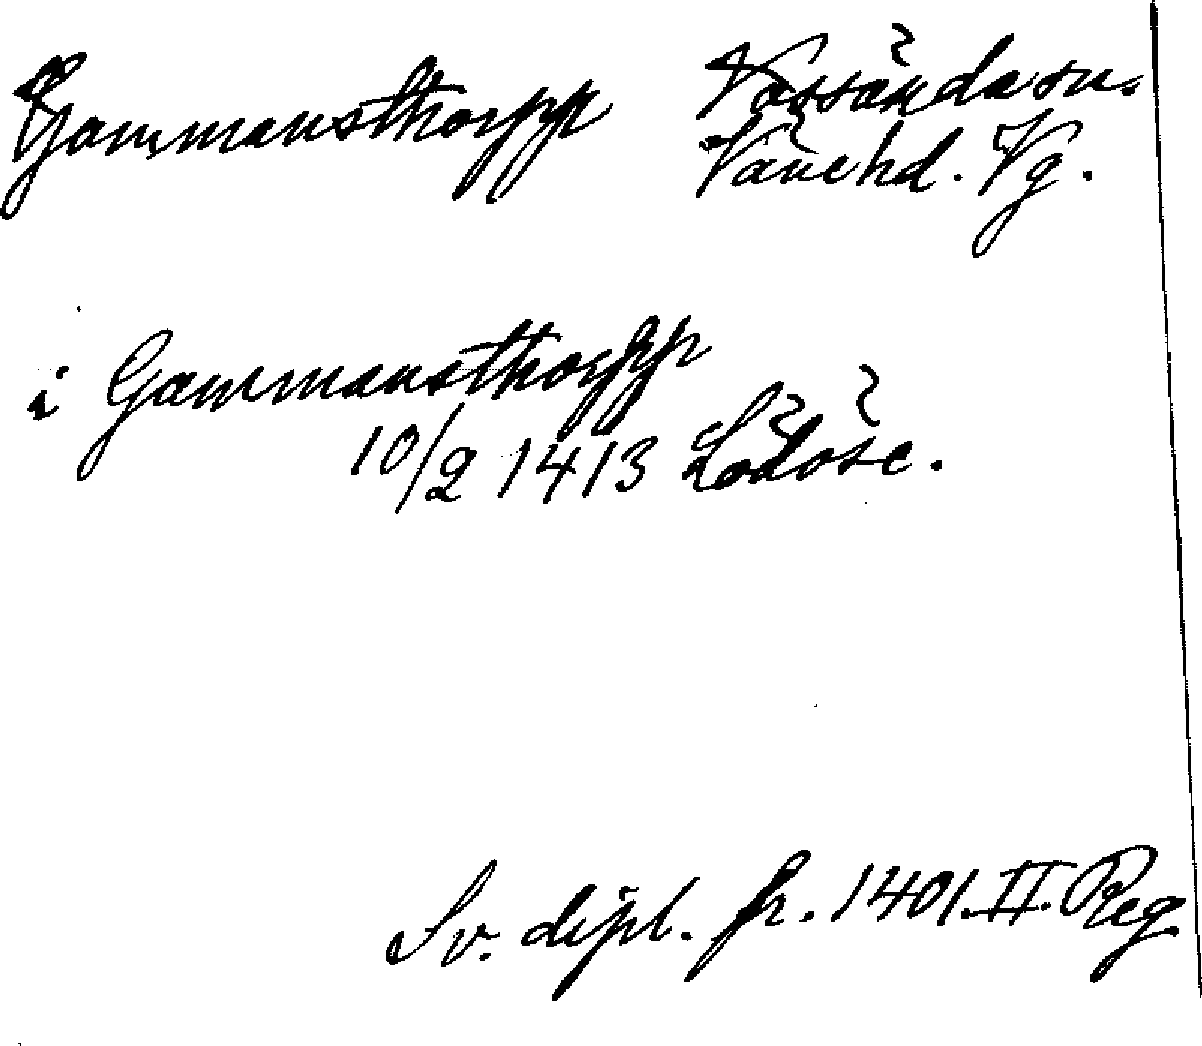 Gammansthorpp Vassända sn.
Väne hd. Vg.
i Gammansthorpp
10/2 1413 Lödöse.
Sv. dipl. fr. 1401. II. Reg